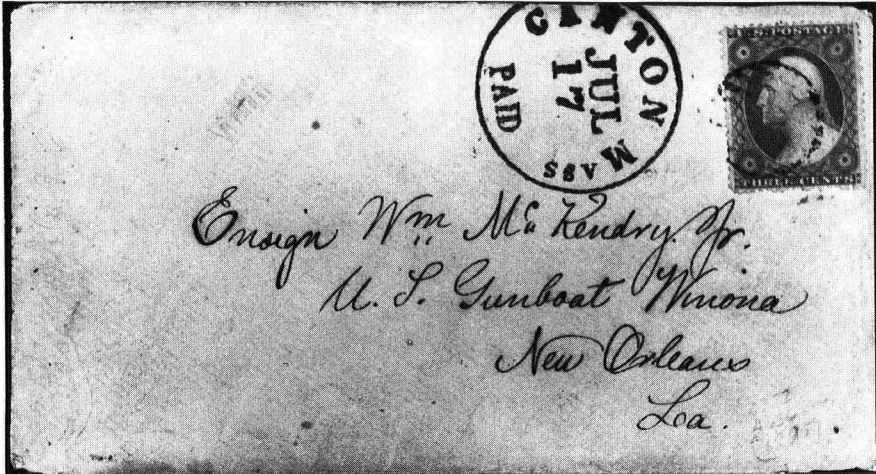 CANTON MASS
JUL
17
PAID
THREE CENTS
Ensign Wm McKendry. Jr.
U. S. Gunboat Winona
New Orleans
La.